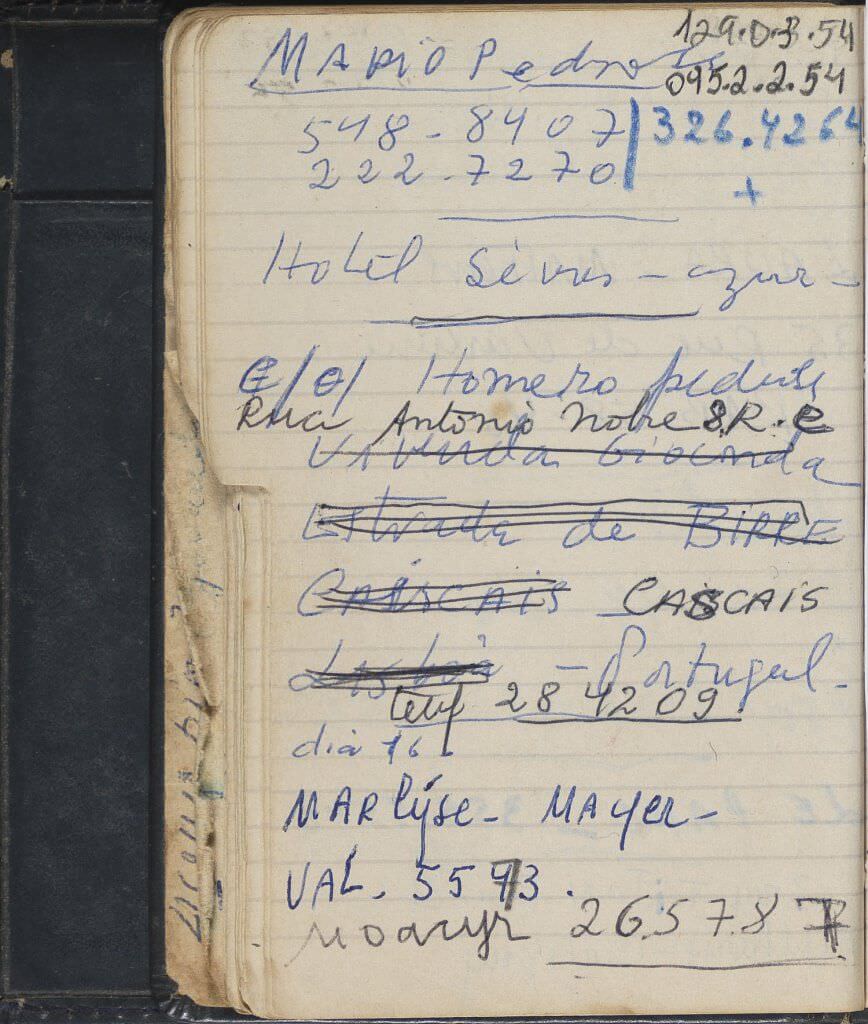 129.0.3.54
MARIO Pedrosa 095.2.2.54
548-8407 | 326.4264
222-7270 +
Hotel Sèvres-azur-
c/o/ Homero pedrosa
Rua Antonio Nobre 8.R.C
Vivenda Gioconda
Estrada de BIRRE
CAISCAIS CASCAIS
Lisboa - Portugal-
telef 284209
dia 16
MARlyse- MAyer-
VAL. 5593.
Moacyr 26.57.87